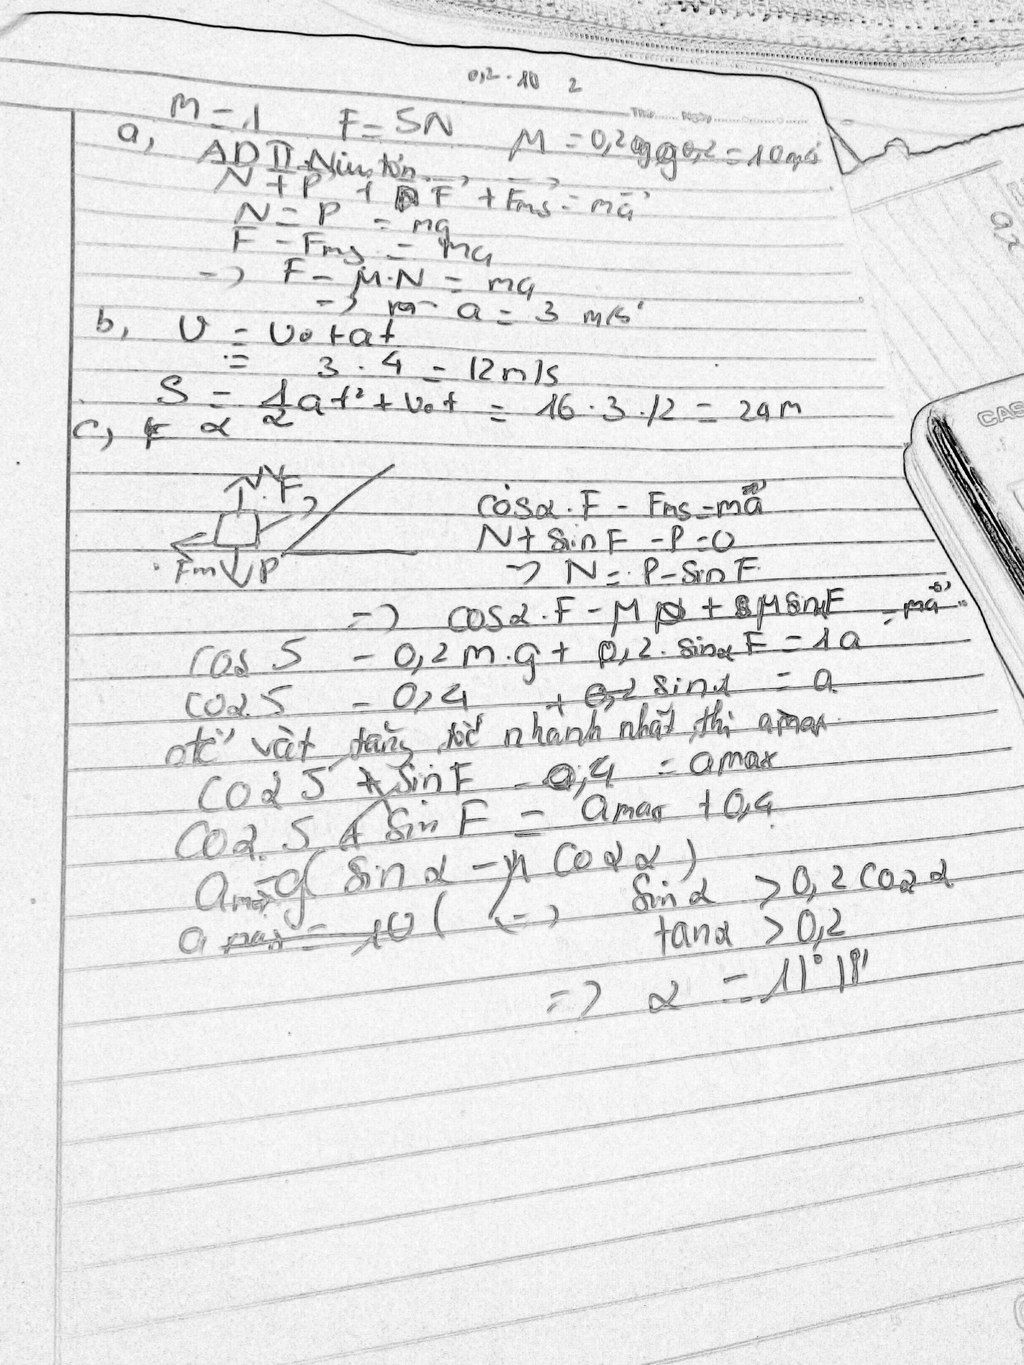 0,2 . 10 2
m = 1 F = 5N M = 0,2 g = 10 m/s
a, AD II Niu tơn
N + P + F + Fms = ma
N = P = mg
F - Fms = ma
=> F - M.N = ma
=> a = 3 m/s²
b, v = v0 + at
= 3 . 4 = 12m/s
S = 1/2 at² + v0t = 16 . 3 . 1/2 = 24m
c, F α
N F
Fm P
cosα . F - Fms = ma
N + sin F - P = 0
=> N = P - sin F
=> cosα . F - M P + M sin F = ma
cos 5 - 0,2 m.g + 0,2 . sinα F = 1a
cosα 5 - 0,4 + 0,2 sinα = a
để vật tăng tốc nhanh nhất thì a max
cosα 5 + sin F - 0,4 = a max
cosα. 5 + sin F = a max + 0,4
a max = g( sin α - M cos α )
a max = 10 ( <=> sinα > 0,2 cos α
tanα > 0,2
=> α = 11° 18'
CAS